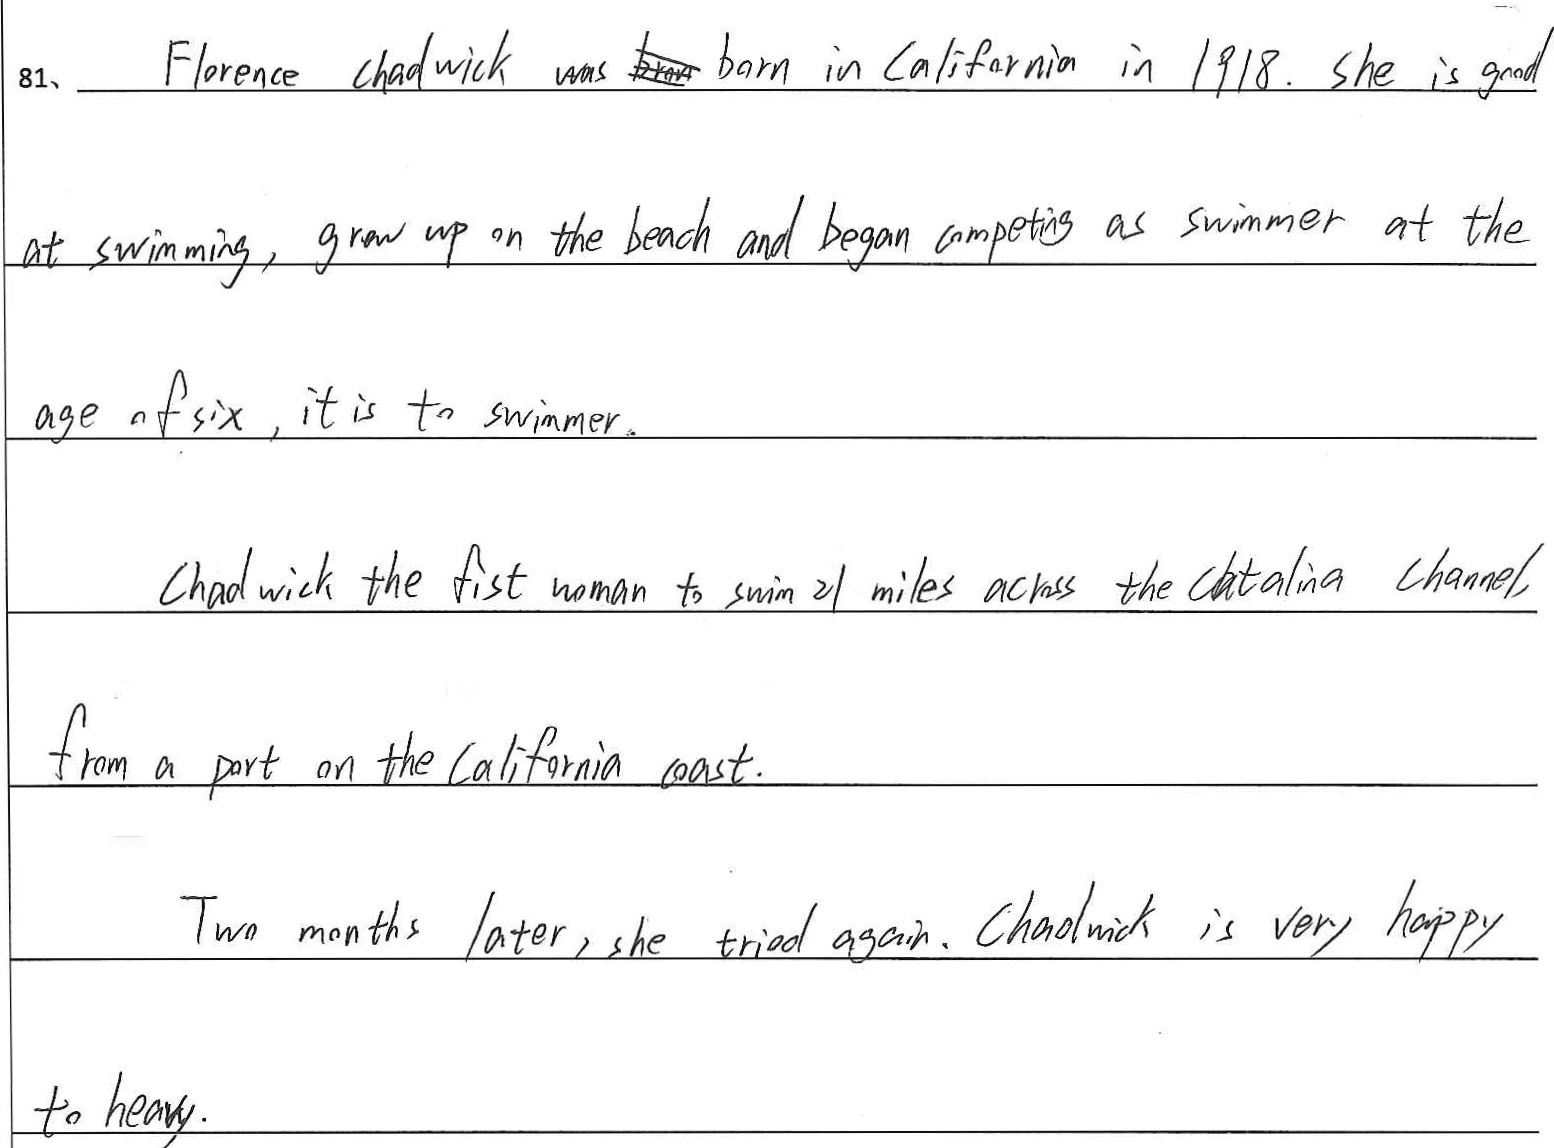 81、 Florence chadwick was born in California in 1918. she is good
at swimming, grow up on the beach and began competing as swimmer at the
age of six, it is to swimmer.
Chadwick the fist woman to swim 21 miles across the Catalina Channel,
from a port on the California coast.
Two months later, she tried again. Chadwick is very happy
to heavy.